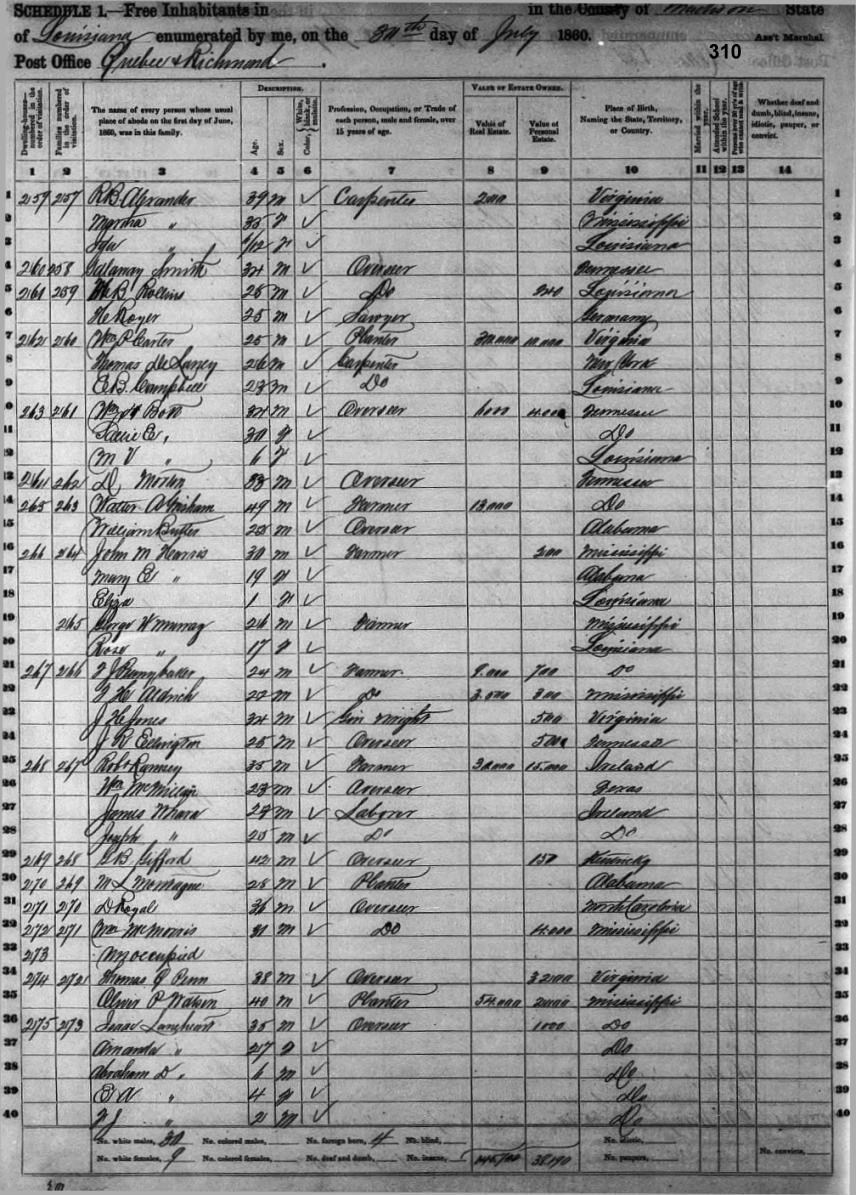 SCHEDULE 1.—Free Inhabitants in in the County of Madison State
of Louisiana enumerated by me, on the 30th day of July 1860. Ass't Marshal
310
Post Office Quebec & Richmond
Dwelling-houses—numbered in the order of visitation. Families numbered in the order of visitation. The name of every person whose usual place of abode on the first day of June, 1860, was in this family. DESCRIPTION. Age. Sex. Color, White, black, or mulatto. Profession, Occupation, or Trade of each person, male and female, over 15 years of age. VALUE OF ESTATE OWNED. Value of Real Estate. Value of Personal Estate. Place of Birth, Naming the State, Territory, or Country. Married within the year. Attended School within the year. Whether deaf and dumb, blind, insane, idiotic, pauper, or convict.
1 2 3 4 5 6 7 8 9 10 11 12 13 14
1 259 257 R B Alexander 39 m ✓ Carpenter 200 Virginia 1
2 Martha " 35 f ✓ Mississippi 2
3 Ida " /12 f ✓ Louisiana 3
4 260 258 Calaway Smith 34 m ✓ Overseer Tennessee 4
5 261 259 B Rollins 28 m ✓ Do 240 Louisiana 5
6 25 m ✓ Sawyer Germany 6
7 262 260 Wm P Carter 25 m ✓ Planter 30,000 10,000 Virginia 7
8 Thomas DeLaney 26 m ✓ Carpenter New York 8
9 E.B. Campbell 23 m ✓ Do Louisiana 9
10 263 261 Wm Bott 34 m ✓ Overseer 4000 Tennessee 10
11 Sallie E " 30 f ✓ Do 11
12 M V " 6 f ✓ Louisiana 12
13 264 262 D Morton 38 m ✓ Overseer Tennessee 13
14 265 263 Walter A Grisham 49 m ✓ Farmer 13,000 Do 14
15 William Butler 25 m ✓ Overseer Alabama 15
16 266 264 John M Harris 30 m ✓ Farmer 200 Mississippi 16
17 Mary E " 19 f ✓ Alabama 17
18 Eliza 1 f ✓ Louisiana 18
19 265 George W Murray 26 m ✓ Farmer Mississippi 19
20 Rose " 17 f ✓ Louisiana 20
21 267 266 24 m ✓ Farmer 8,000 700 Do 21
22 F H Aldrich 22 m ✓ Do 3,000 300 Mississippi 22
23 J H Jones 34 m ✓ Gin wright 500 Virginia 23
24 J R Edington 25 m ✓ Overseer 500 Tennessee 24
25 268 267 Robt Ramsey 35 m ✓ Farmer 30,000 15,000 Ireland 25
26 Wm McMillan 23 m ✓ Overseer Texas 26
27 James Ohara 27 m ✓ Laborer Ireland 27
28 Joseph " 25 m ✓ Do Do 28
29 269 268 G B Gifford 42 m ✓ Overseer 150 Kentucky 29
30 270 269 M L Montague 28 m ✓ Planter Alabama 30
31 271 270 D Royal 36 m ✓ Overseer North Carolina 31
32 272 271 Wm McMorris 31 m ✓ Do 4,000 Mississippi 32
33 273 Unoccupied 33
34 274 272 Thomas G Penn 38 m ✓ Overseer 3200 Virginia 34
35 Oliver P Watson 40 m ✓ Planter 54,000 2000 Mississippi 35
36 275 273 Isaac Lanehart 35 m ✓ Overseer 1000 Do 36
37 Amanda " 27 f ✓ Do 37
38 Abraham D " 6 m ✓ Do 38
39 E A " 4 f ✓ Do 39
40 F J " 2 m ✓ Do 40
No. white males, 30 No. colored males, No. foreign born, 4 No. blind, No. idiotic,
No. white females, 9 No. colored females, No. deaf and dumb, No. insane, 38,190 No. paupers, No. convicts,